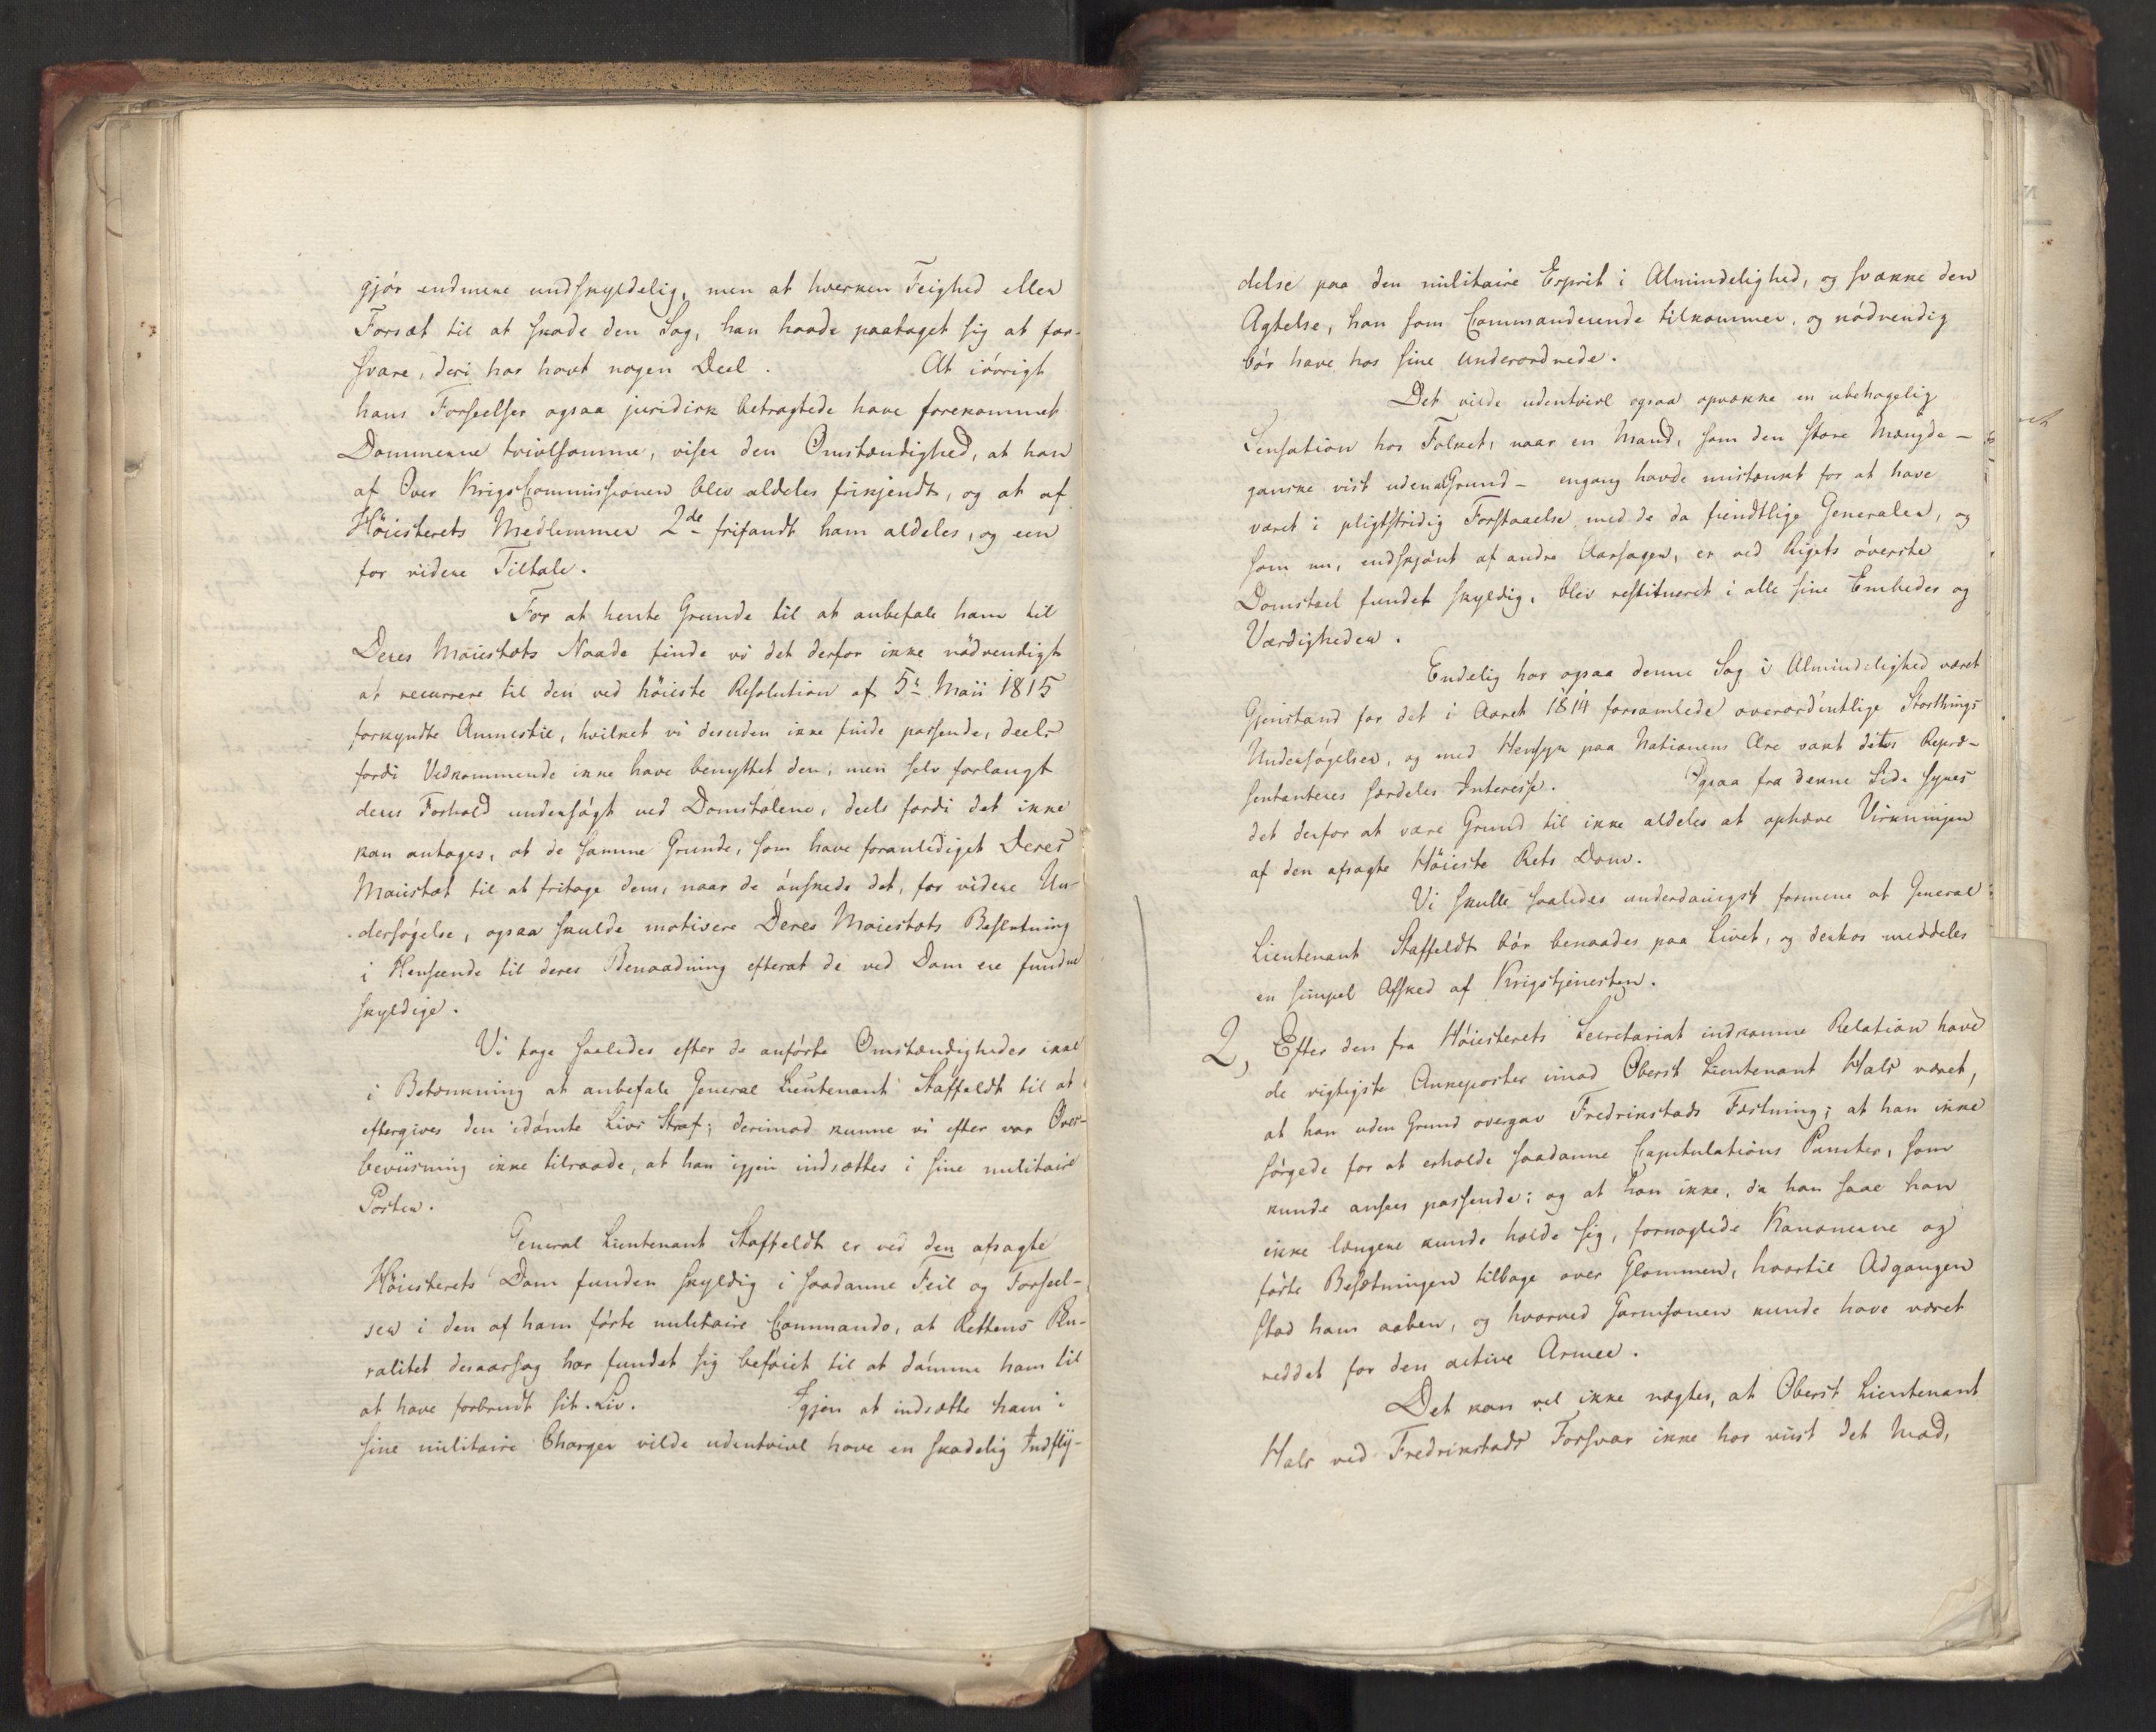 gjör endmere undskyldelig, men at hverken Feighed eller
Forsæt til at skade den Sag, han havde paataget sig at for-
svare, deri har havt nogen Deel. At iövrigt
hans Forseelser ogsaa juridisk betragtede have forekommet
Dommerne tvivlsomme, viser den Omstændighed, at han
af Over Krigs Commissionen blev aldeles frikjendt, og at af
Höiesterets Medlemmer 2de frifandt ham aldeles, og een
for videre Tiltale.
For at hente Grunde til at anbefale ham til
Deres Maiestæts Naade finde vi det derfor ikke nödvendigt
at recurrere til den ved höieste Resolution af 5te Maii 1815
forkyndte Amnestie, hvilket vi desuden ikke finde passende, deels
fordi Vedkommende ikke have benyttet den, men selv forlangt
deres Forhold undersögt ved Domstolene, deels fordi det ikke
kan antages, at de samme Grunde, som have foranlediget Deres
Maiestæt til at fritage dem, naar de önskede det, for videre Un-
dersögelse, ogsaa skulde motivere Deres Maiestæts Beslutning
i Henseende til deres Benaadning efterat de ved Dom ere fundne
skyldige.
Vi tage saaledes efter de anförte Omstændigheder ikke
i Betænkning at anbefale General Lieutenant Staffeldt til at
eftergives den idömte Livs Straf; derimod kunne vi efter vor Over-
beviisning ikke tilraade, at han igjen indsættes i sine militaire
Poster.
General Lieutenant Staffeldt er ved den afsagte
Höiesterets Dom funden skyldig i saadanne Feil og Forseel-
ser i den af ham förte militaire Commando, at Rettens Plu-
ralitet desaarsag har fundet sig beföiet til at dömme ham til
at have forbrudt sit Liv. Igjen at indsætte ham i
sine militaire Charger vilde udentvivl have en skadelig Indfly-
delse paa den militaire Esprit i Almindelighed, og svække den
Agtelse, han som Commanderende tilkommer, og nödvendig
bör have hos sine Underordnede.
Det vilde udentvivl ogsaa opvække en ubehagelig
Sensation hos Folket, naar en Mand, som den store Mængde -
ganske vist uden Grund - engang havde mistænkt for at have
været i pligtstridig Forstaaelse med de da fiendtlige Generaler, og
som nu, endskjönt af andre Aarsager, er ved Rigets överste
Domstoel fundet skyldig, blev restitueret i alle sine Embeder og
Værdigheder.
Endelig har ogsaa denne Sag i Almindelighed været
Gjenstand for det i Aaret 1814 forsamlede overordentlige Storthings
Undersögelser, og med Hensyn paa Nationens Ære vakt dets Repræ-
sentanteres særdeles Interesse. Ogsaa fra denne Side synes
det derfor at være Grund til ikke aldeles at ophæve Virkningen
af den afsagte Höieste Rets Dom.
Vi skulle saaledes underdanigst formene at General
Lieutenant Staffeldt bör benaades paa Livet, og derhos meddeles
en simpel Afsked af Krigstjenesten.
2, Efter den fra Höiesterets Secretariat indkomne Relation have
de vigtigste Ankeposter imod Oberst Lieutenant Hals været,
at han uden Grund overgav Fredrikstads Fæstning; at han ikke
sörgede for at erholde saadanne Capitulations Puncter, som
kunde ansees passende; og at han ikke, da han saae han
ikke længere kunde holde sig, fornaglede Kanonerne og
förte Besætningen tilbage over Glommen, hvortil Adgangen
stod ham aaben, og hvorved Garnisonen kunde have været
reddet for den active Armee.
Det kan vel ikke nægtes, at Oberst Lieutenant
Hals ved Fredrikstads Forsvar ikke har viist det Mod,